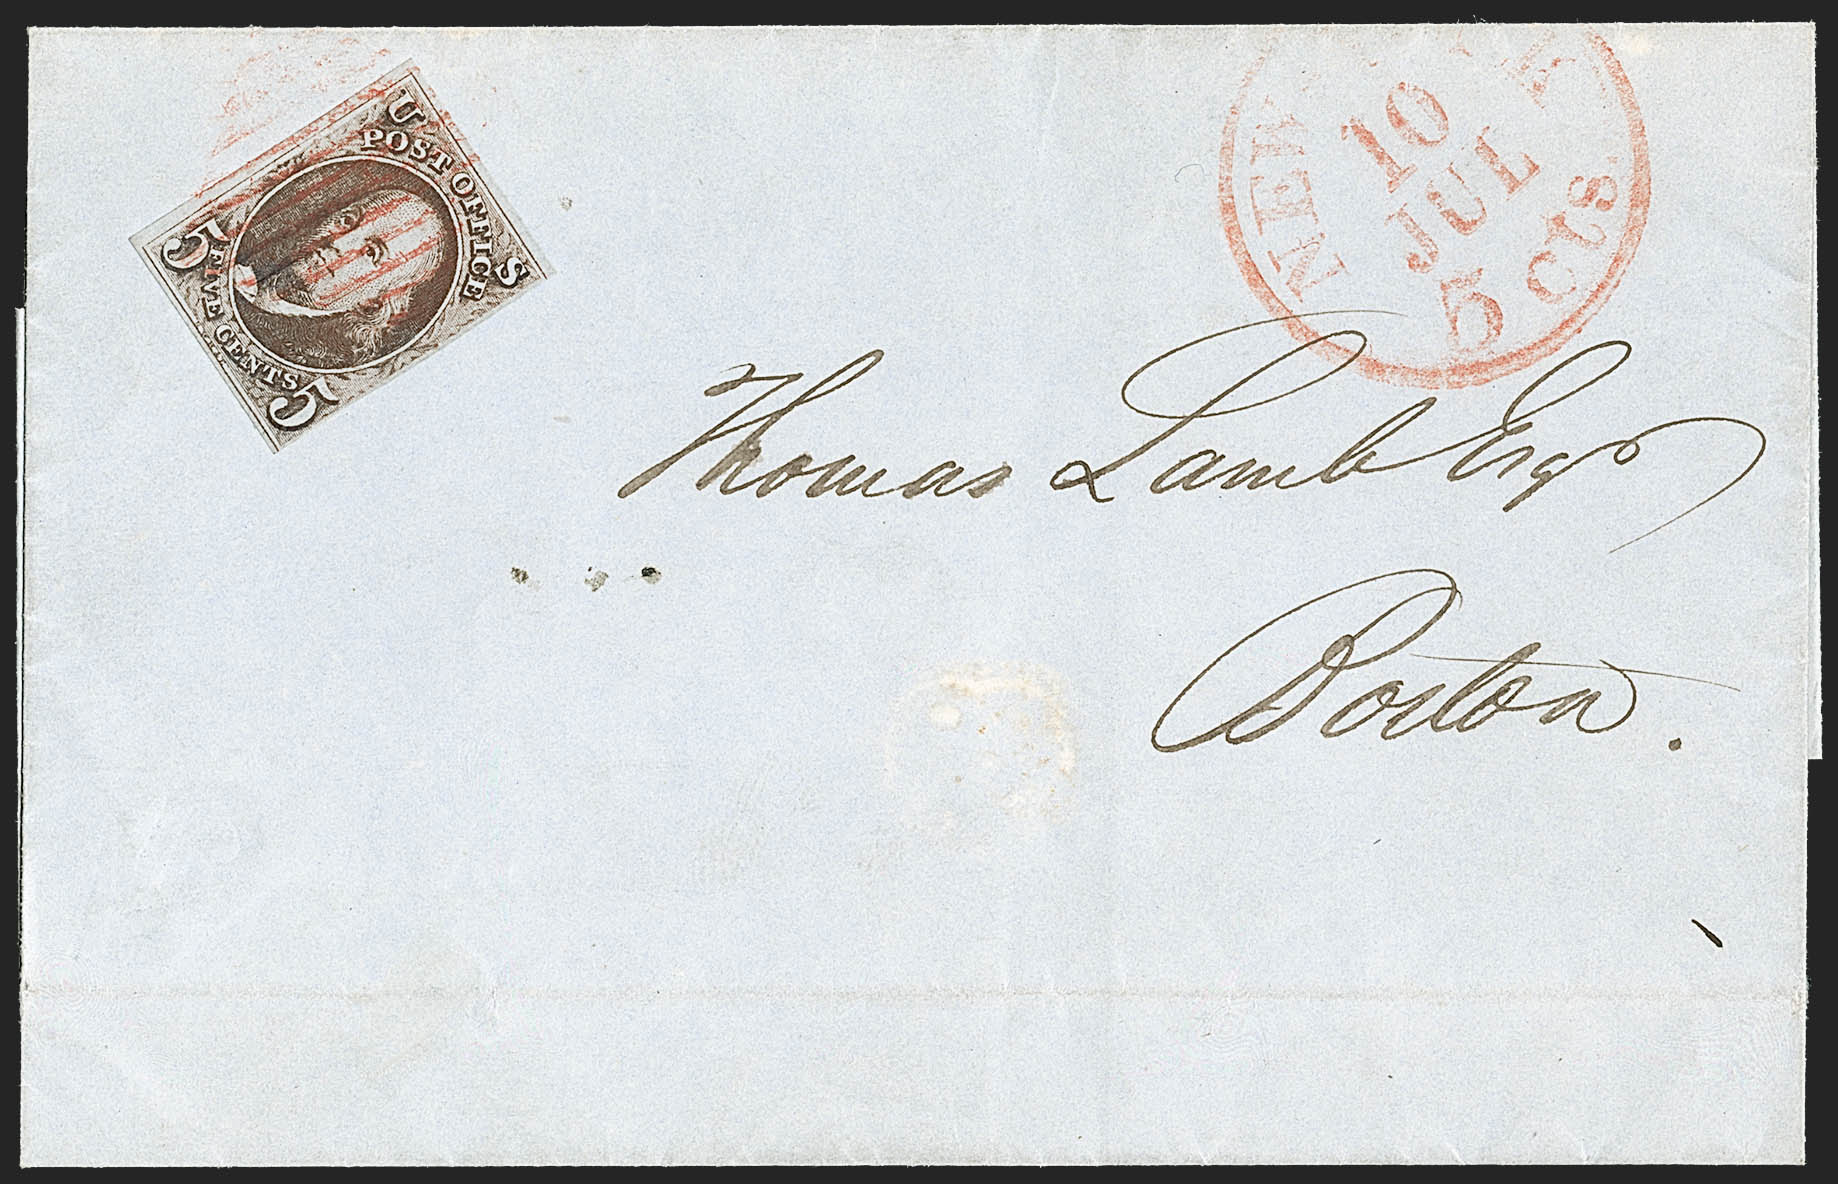 U S
POST OFFICE
5 5
FIVE CENTS
NEW
10
JUL
5 cts.
Thomas Lamb Esq
Boston.